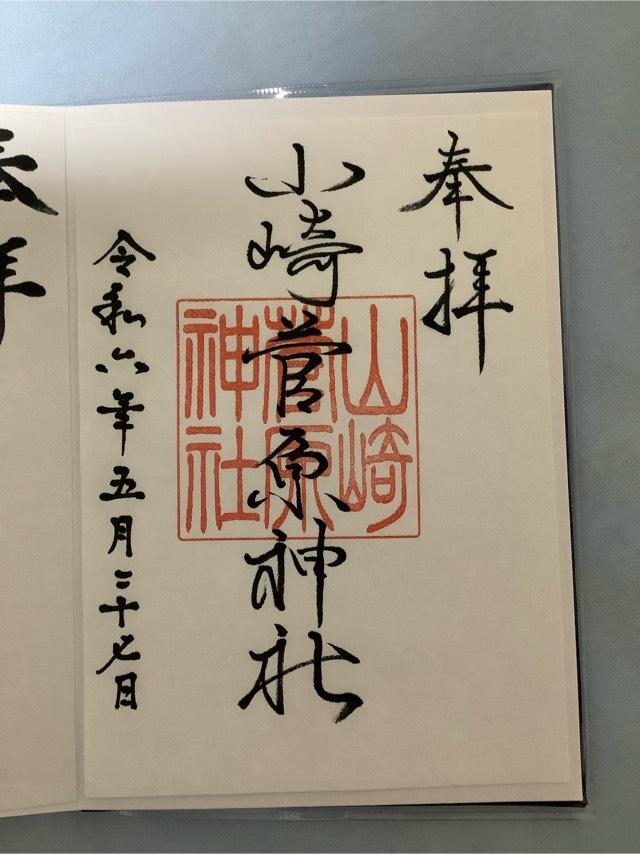 奉拝
山崎菅原神社
山崎
菅原
神社
令和六年五月二十七日
拝